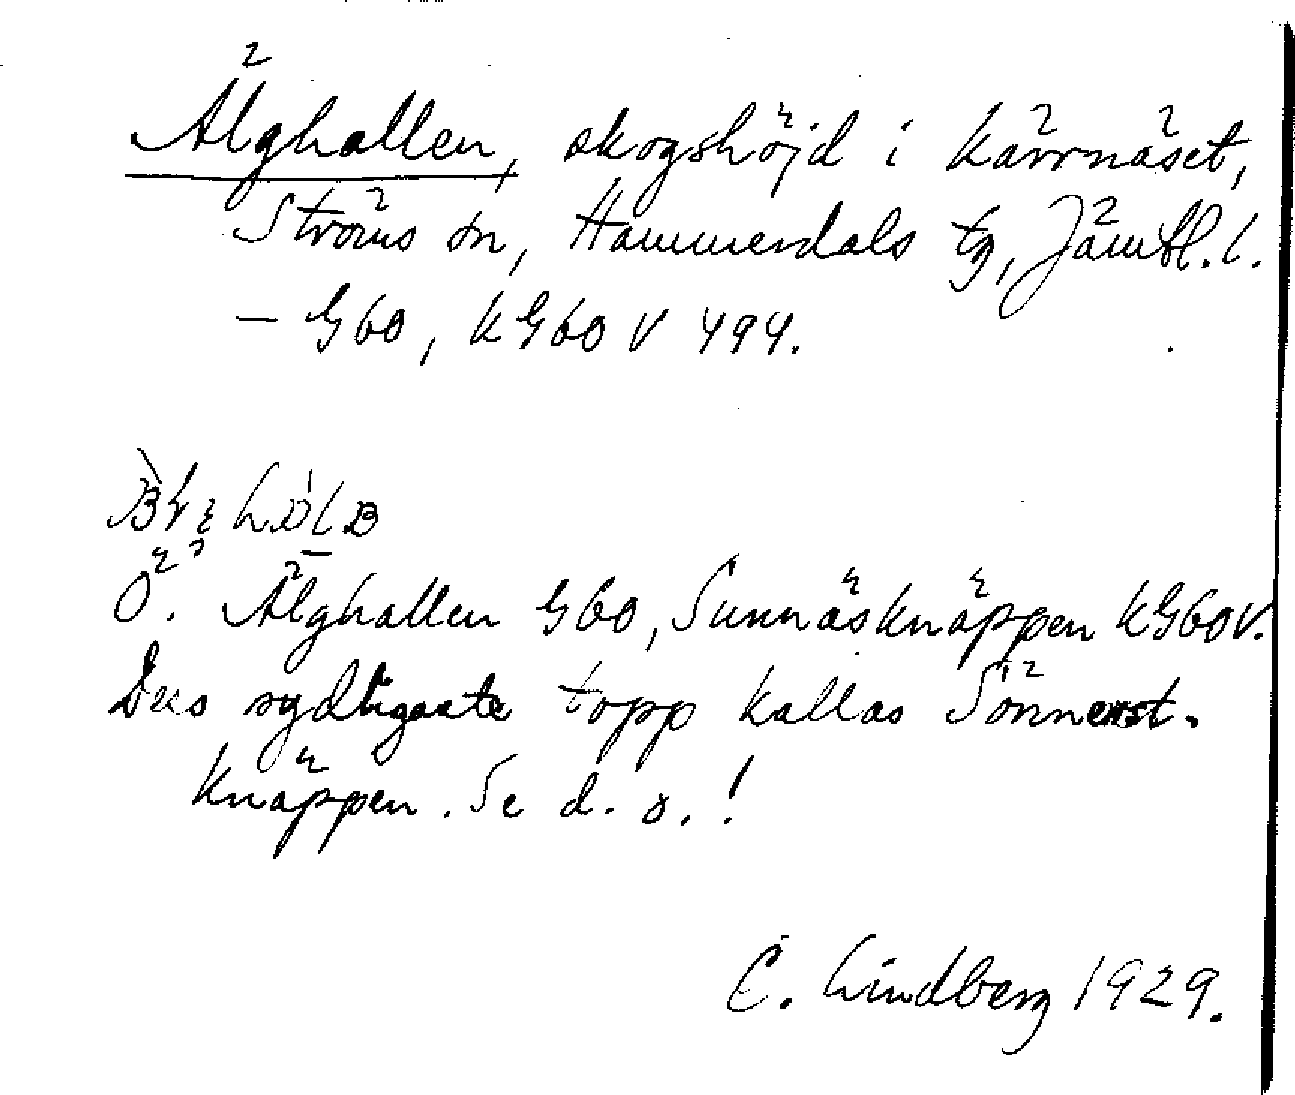 Älghallen, skogshöjd i Kärrnäset,
Ströms sn, Hammerdals tg, Jämtl. l.
— G60, KG60 V 494.
Ö. Älghallen G60, Sunnäsknäppen KG60V.
Dess sydligaste topp kallas Sönnerst-
knäppen. Se d. o.!
E. Lindberg 1929.